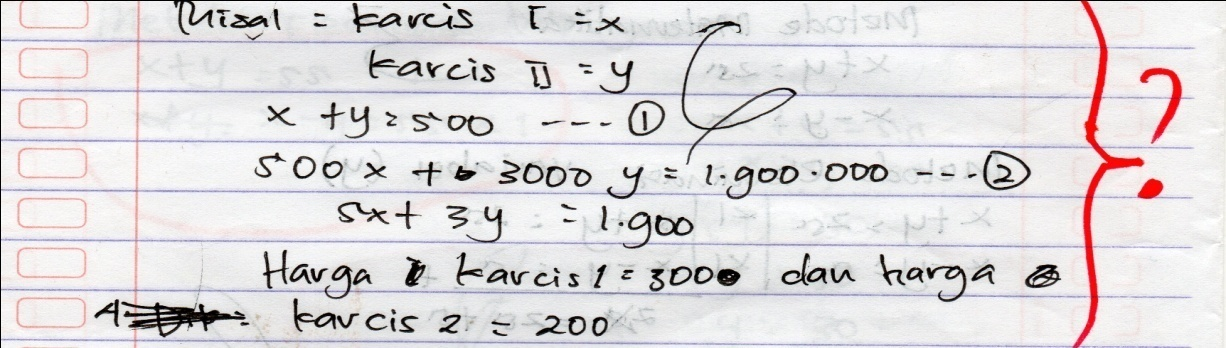 Misal = karcis I = x
karcis II = y
x + y = 500 --- ①
500x + 3000 y = 1.900.000 --- ②
5x + 3y = 1.900
Harga karcis 1 = 3000 dan harga
karcis 2 = 200
?